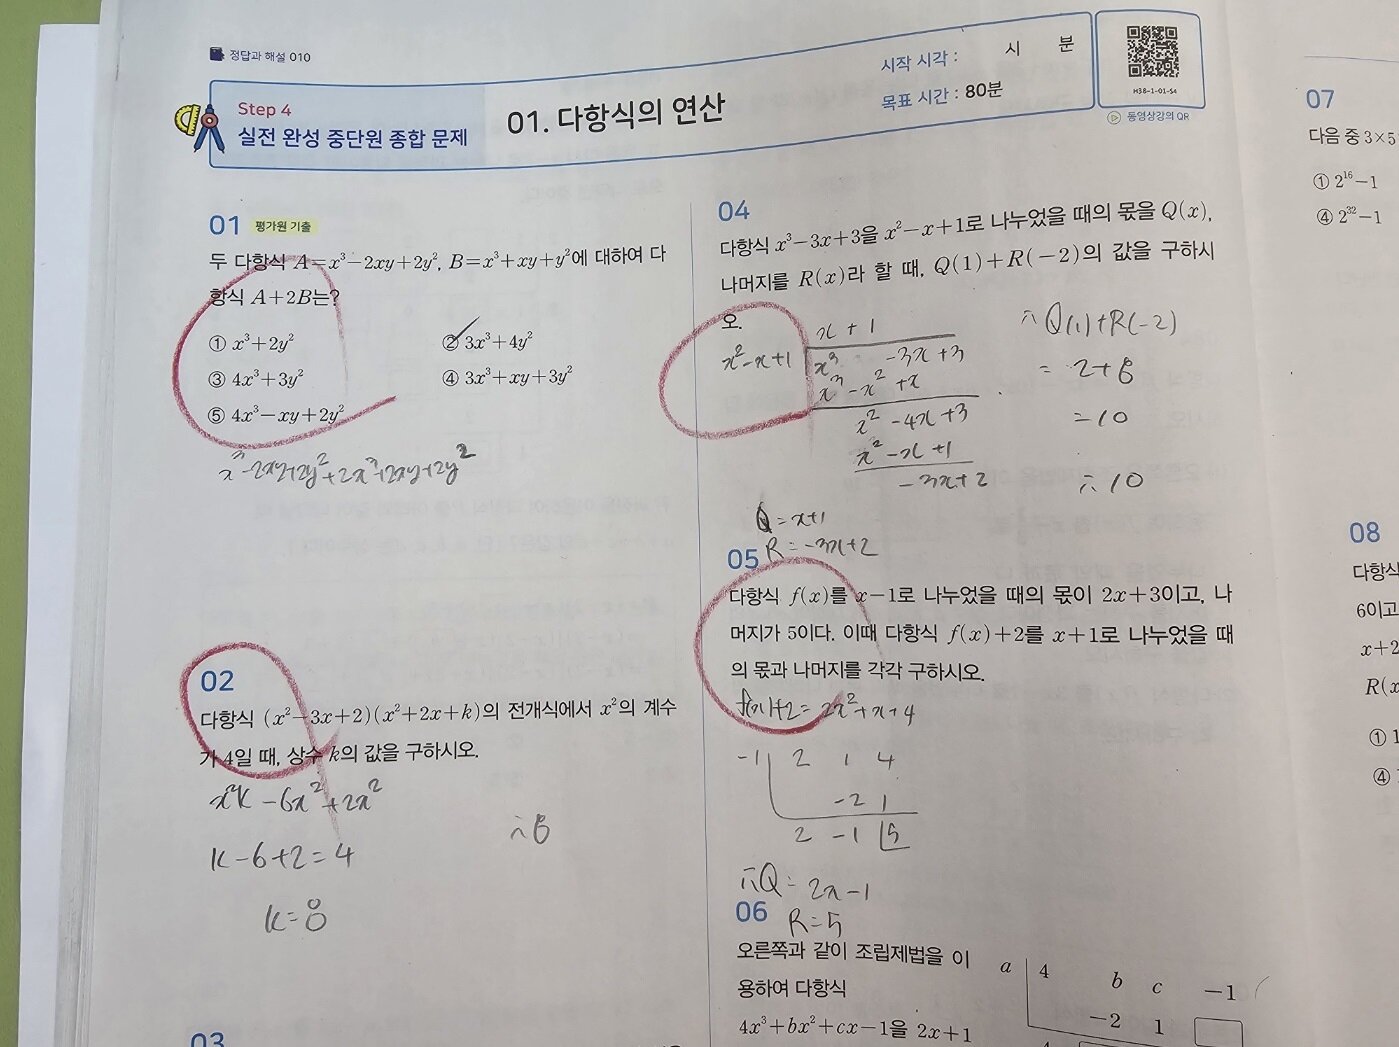 정답과 해설 010
Step 4
실전 완성 중단원 종합 문제
01. 다항식의 연산
시작 시각 : 시 분
목표 시간 : 80분
H38-1-01-S4
동영상강의 QR
01 평가원 기출
두 다항식 A=x³-2xy+2y², B=x³+xy+y²에 대하여 다
항식 A+2B는?
① x³+2y² ② 3x³+4y²
③ 4x³+3y² ④ 3x³+xy+3y²
⑤ 4x³-xy+2y²
x³-2xy+2y²+2x³+2xy+2y²
02
다항식 (x²-3x+2)(x²+2x+k)의 전개식에서 x²의 계수
가 4일 때, 상수 k의 값을 구하시오.
x²k-6x²+2x²
k-6+2=4
k=8
∴8
03
04
다항식 x³-3x+3을 x²-x+1로 나누었을 때의 몫을 Q(x),
나머지를 R(x)라 할 때, Q(1)+R(-2)의 값을 구하시
오.
x+1
x²-x+1 x³ -3x+3
x³-x²+x
x²-4x+3
x²-x+1
-3x+2
∴Q(1)+R(-2)
=2+8
=10
∴10
Q=x+1
R=-3x+2
05
다항식 f(x)를 x-1로 나누었을 때의 몫이 2x+3이고, 나
머지가 5이다. 이때 다항식 f(x)+2를 x+1로 나누었을 때
의 몫과 나머지를 각각 구하시오.
f(x)+2=2x²+x+4
-1 2 1 4
-2 1
2 -1 5
∴Q=2x-1
R=5
06
오른쪽과 같이 조립제법을 이
용하여 다항식
4x³+bx²+cx-1을 2x+1
a 4 b c -1
-2 1
07
다음 중 3×5
① 2¹⁶-1
④ 2³²-1
08
다항식
6이고
x+2
R(x
① 1
④